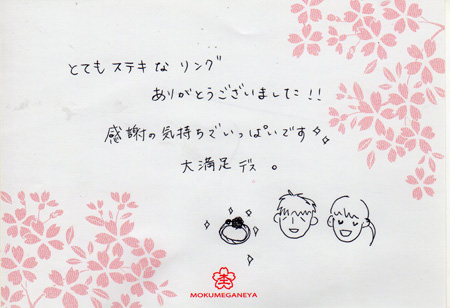 とてもステキなリング
ありがとうございました!!
感謝の気持ちでいっぱいです
大満足デス。
MOKUMEGANEYA